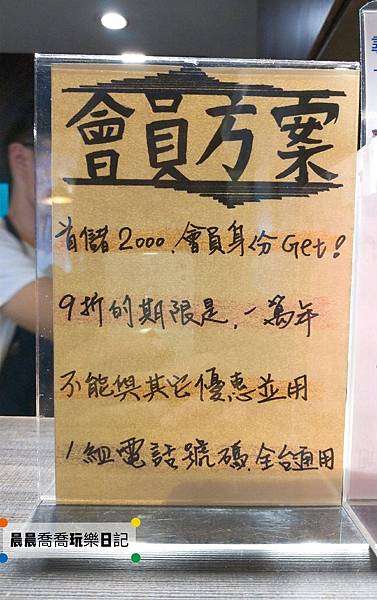 會員方案
首儲2000，會員身份Get！
9折的期限是，一萬年
不能與其它優惠並用
1組電話號碼，全台通用
晨晨喬喬玩樂日記